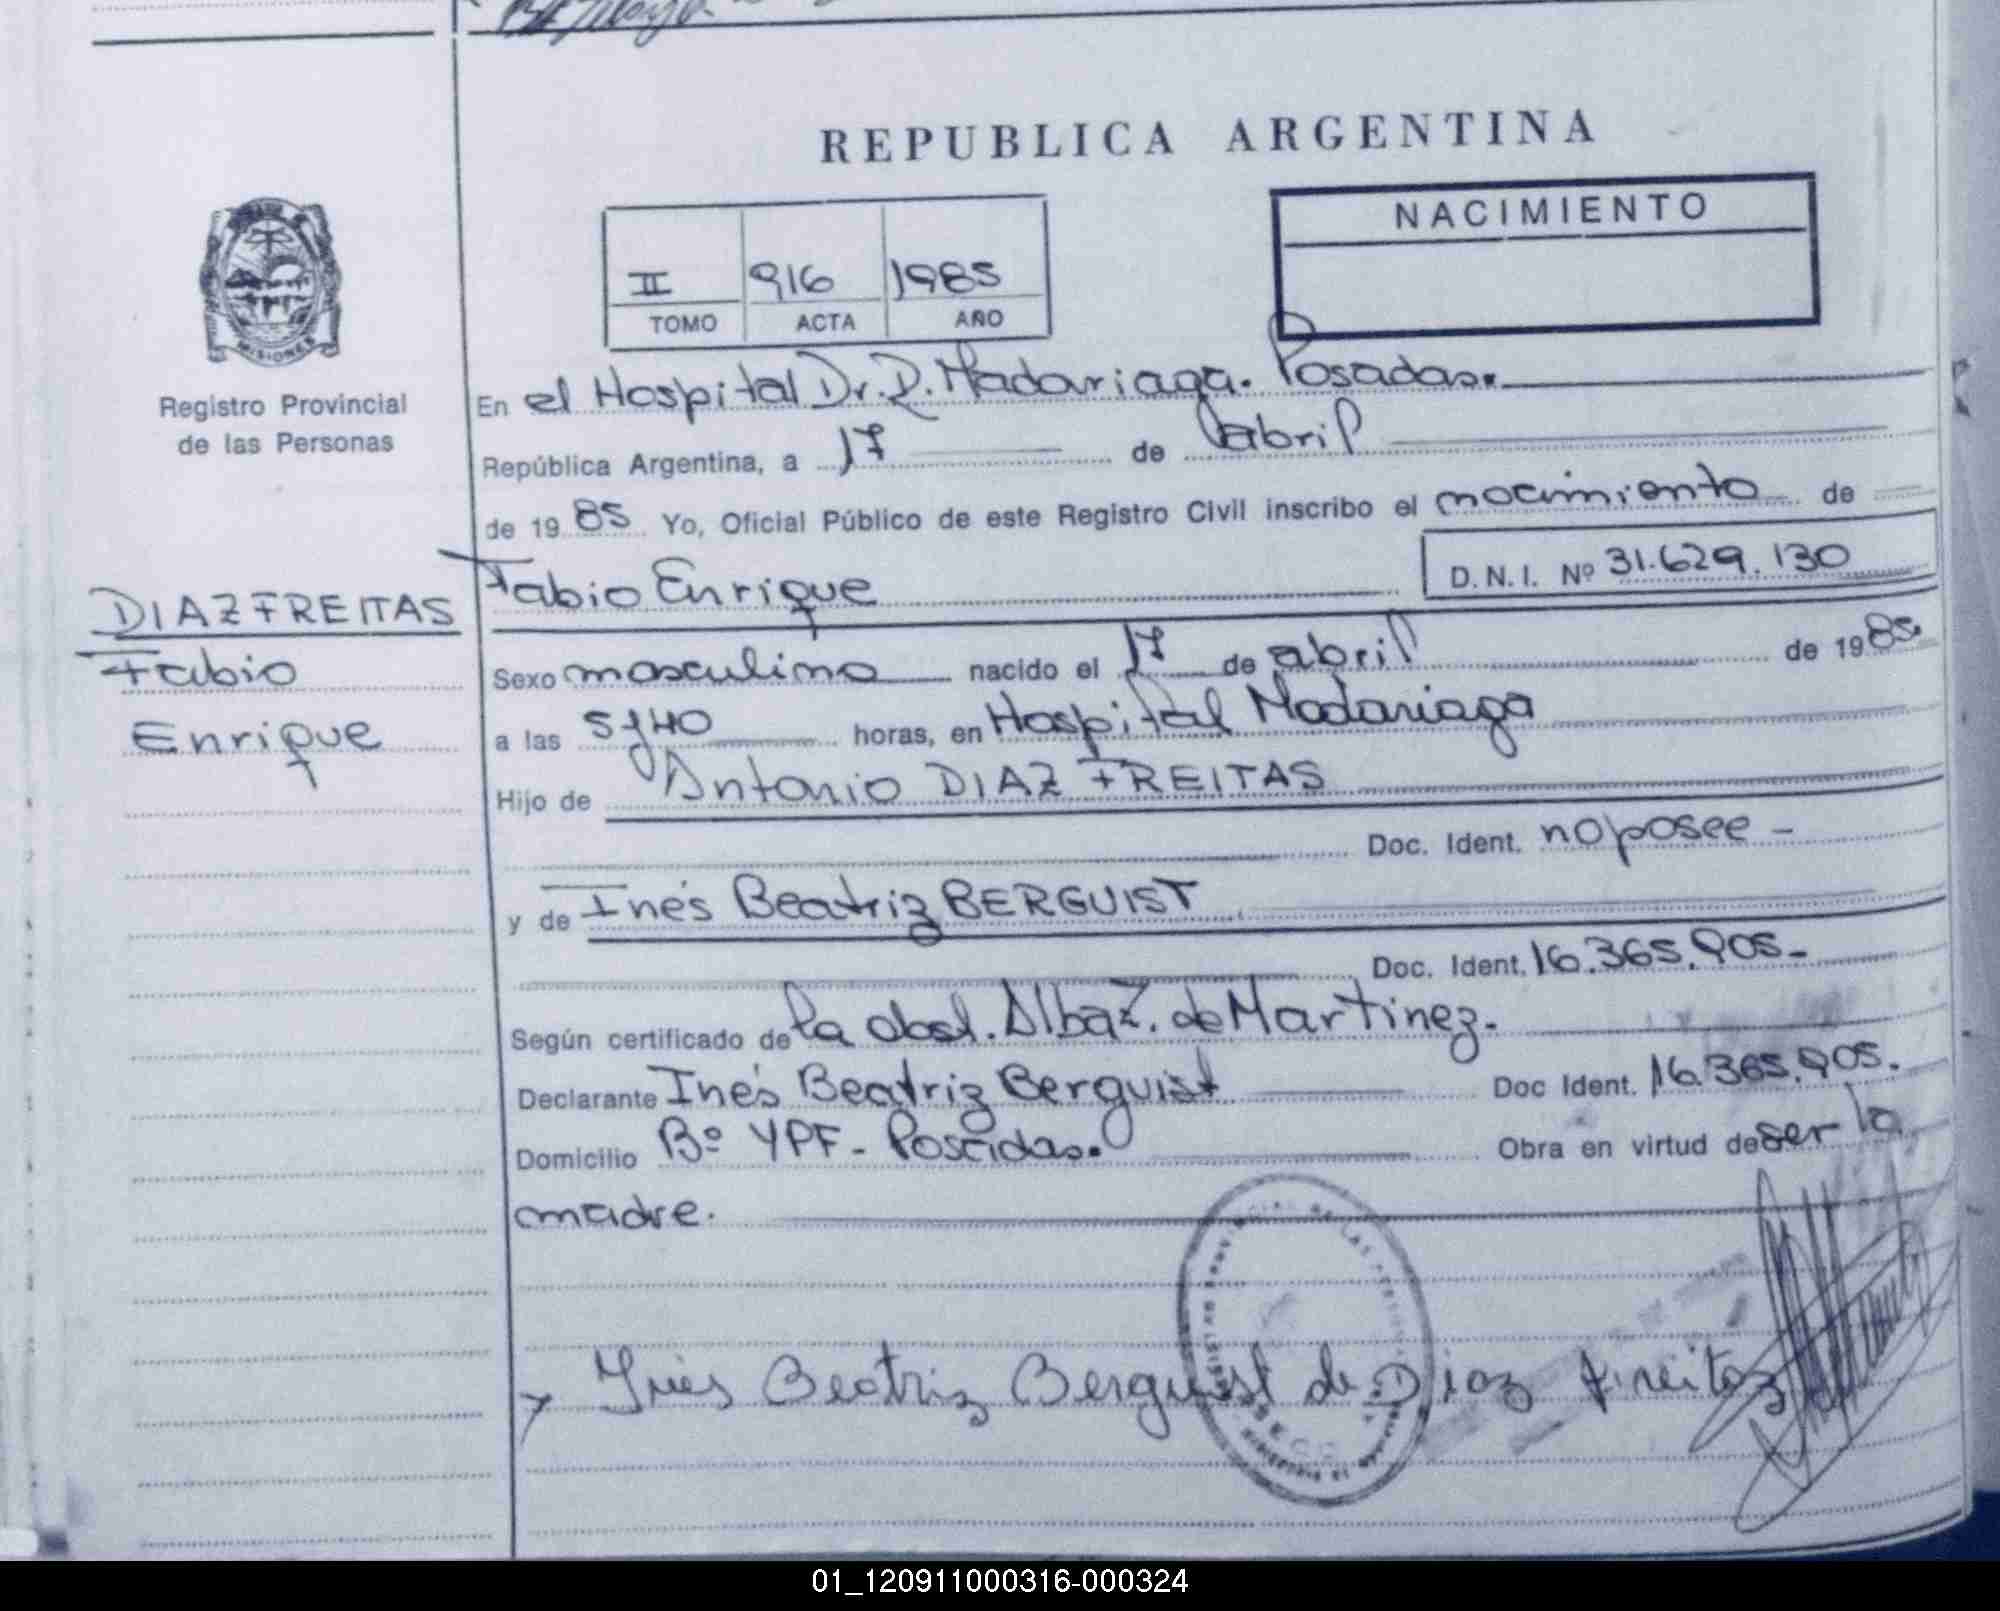 REPUBLICA ARGENTINA
NACIMIENTO
II 916 1985
TOMO ACTA AÑO
MISIONES
Registro Provincial
de las Personas
En el Hospital Dr. R. Madariaga. Posadas.
República Argentina, a 17 de abril
de 1985 Yo, Oficial Público de este Registro Civil inscribo el nacimiento de
Fabio Enrique D.N.I. Nº 31.629.130
DIAZ FREITAS
Fabio
Enrique
Sexo masculino nacido el 17 de abril de 1985.
a las 5y40 horas, en Hospital Madariaga
Hijo de Antonio DIAZ FREITAS
Doc. Ident. no posee -
y de Inés Beatriz BERGUIST
Doc. Ident. 16.365.905.-
Según certificado de la obst. Alba Z. de Martinez.
Declarante Inés Beatriz Berguist Doc Ident. 16.365.905.
Domicilio Bº YPF - Posadas. Obra en virtud de ser la
madre.
Inés Beatriz Berguist de Diaz freitas
01_120911000316-000324